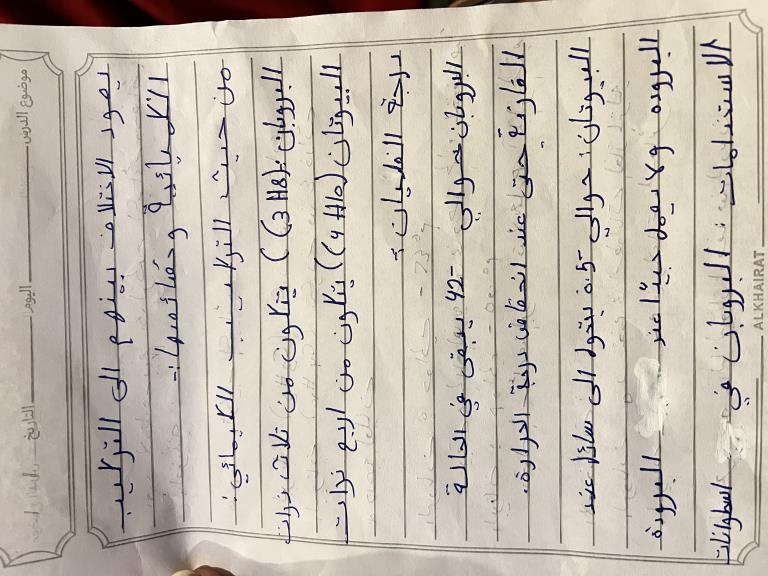 موضوع الدرس
اليوم
التاريخ
يعود الاختلاف بينهم الى التركيب
الكيميائية وخصائصها:-
من حيث التركيب الكيميائي:
البروبان: (C3H8) يتكون من ثلاث ذرات
البيوتان (C4H10) يتكون من اربع ذرات
درجة الغليان:
البروبان حوالي -42 يبقى في الحالة
الغازية حتى عند انخفاض درجة الحرارة.
البيوتان: حوالي -0.5 يتحول الى سائل عند
البروده ولا يعمل جيدًا عند البرودة
الاستخدامات: البروبان في اسطوانات
ALKHAIRAT